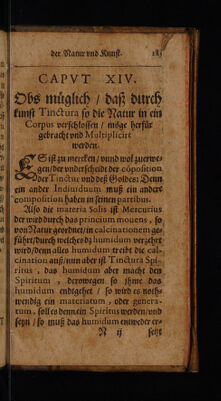 der Natur vnd Kunst. 183
CAPVT XIV.
Obs müglich / daß durch
kunst Tinctura so die Natur in ein
Corpus verschlossen / möge herfür
gebracht vnd Multiplicirt
werden.
ES ist zu mercken / vnnd wol zuerwe-
gen / der vnderscheidt der cōposition
der Tinctur vnd deß Goldes: Denn
ein ander Indiuiduum muß ein andere
composition haben in seinen partibus.
Also die materia Solis ist Mercurius
der wird durch das princium mouens, so
von Natur geordnet / in calcinationem ge-
führt / durch welches dz humidum verzehrt
wird / denn alles humidum treibt die cal-
cination auß / nun aber ist Tinctura Spi-
ritus, das humidum aber macht den
Spiritum, derowegen so jhme das
humidum endtgehet / so wird es noth-
wendig ein materiatum, oder genera-
tum, soll es denn ein Spiritus werden / vnd
seyn / so muß das humidum entweder er-
N ij setzt